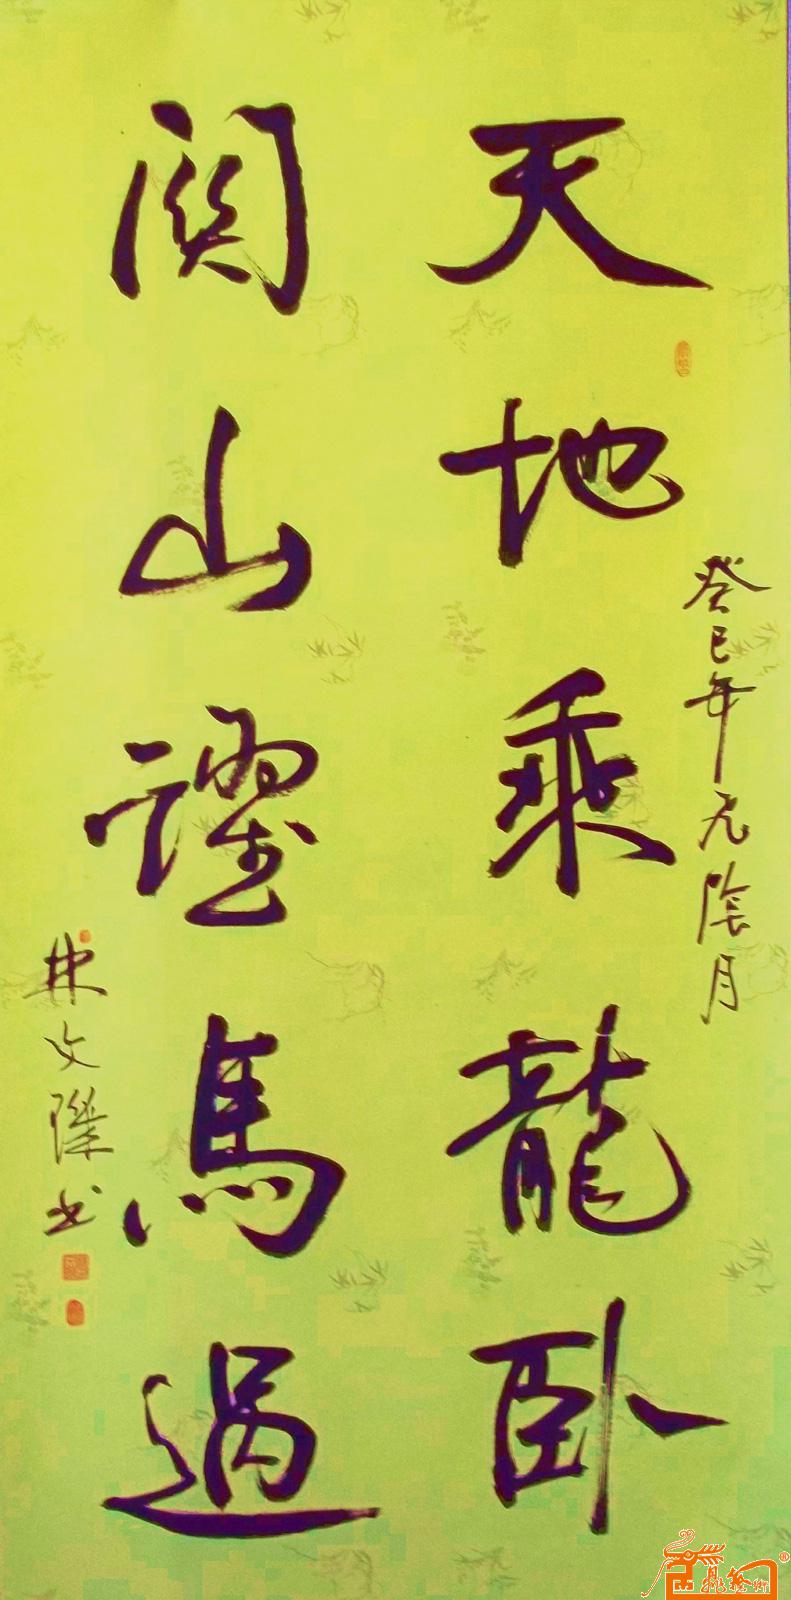 天地乘龍卧
關山躍馬過
癸巳年元陰月
林文璨书